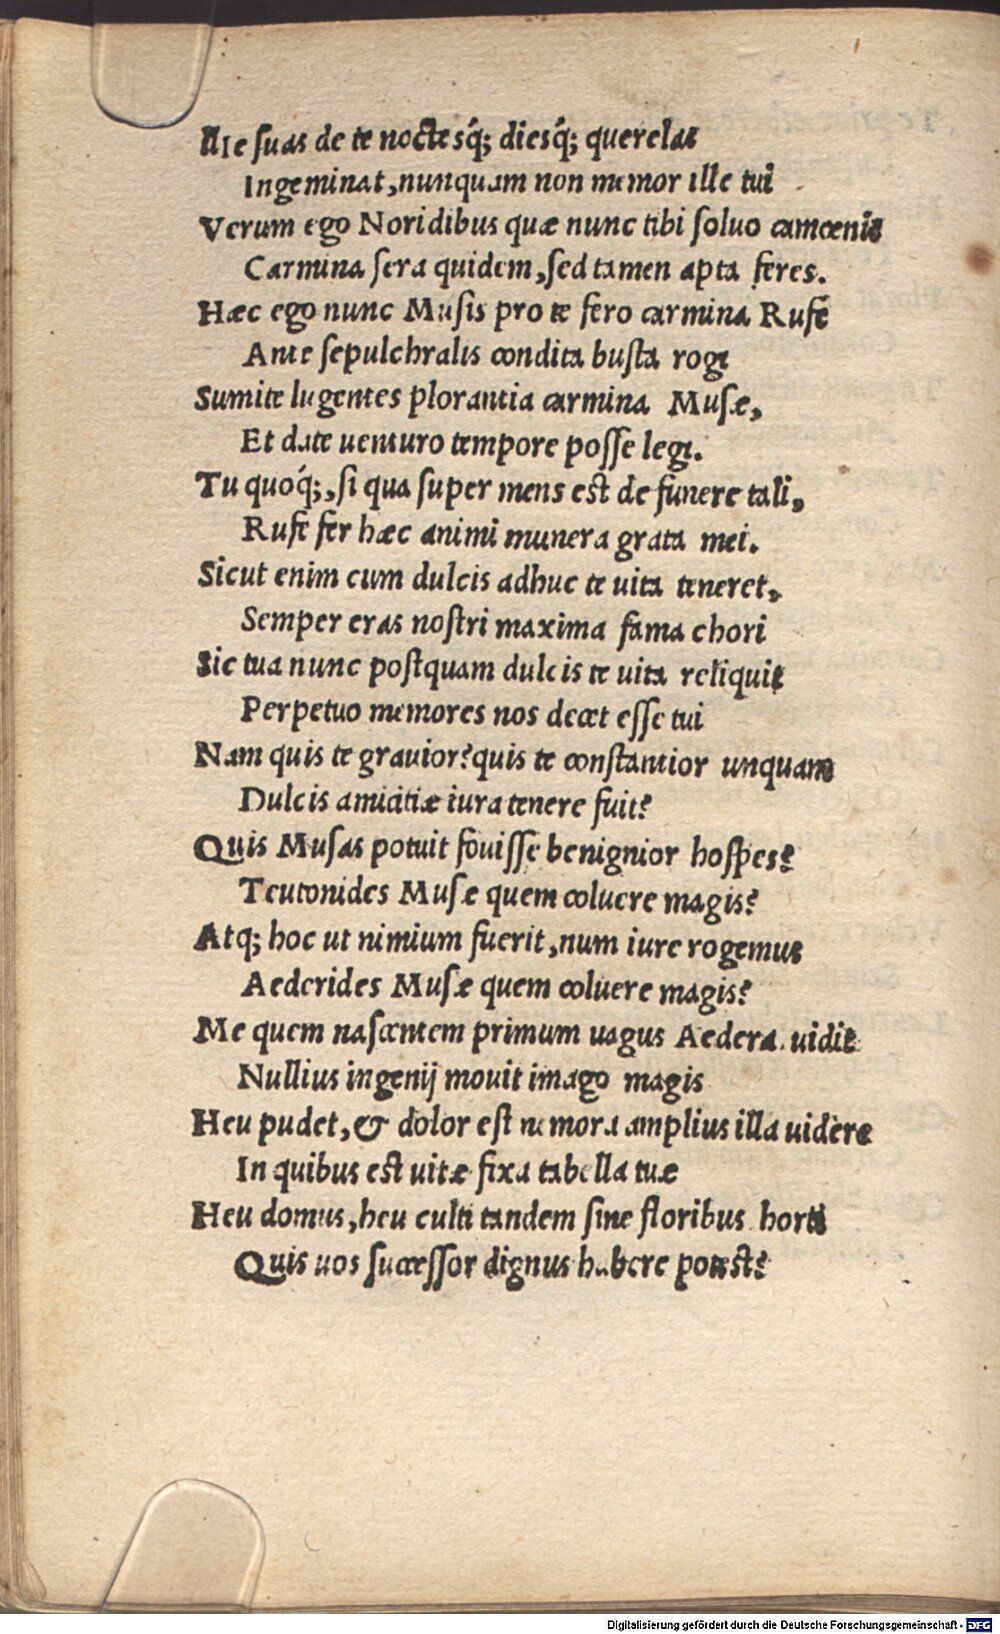 Ille suas de te noctesq́; diesq́; querelas
Ingeminat, nunquam non memor ille tui
Verum ego Noridibus quæ nunc tibi soluo camœnis
Carmina sera quidem, sed tamen apta feres.
Hæc ego nunc Musis pro te fero carmina Rufe
Ante sepulchralis condita busta rogi
Sumite lugentes plorantia carmina Musæ,
Et date uenturo tempore posse legi.
Tu quoq́;, si qua super mens est de funere tali,
Rufe fer hæc animi munera grata mei.
Sicut enim cum dulcis adhuc te uita teneret,
Semper eras nostri maxima fama chori
Sic tua nunc postquam dulcis te uita reliquit
Perpetuo memores nos decet esse tui
Nam quis te grauior? quis te constantior unquam
Dulcis amicitiæ iura tenere fuit?
Quis Musas potuit fouisse benignior hospes?
Teutonides Musæ quem coluere magis?
Atq; hoc ut nimium fuerit, num iure rogemus
Aederides Musæ quem coluere magis?
Me quem nascentem primum uagus Aedera uidit
Nullius ingenij mouit imago magis
Heu pudet, & dolor est nemora amplius illa uidere
In quibus est uitæ fixa tabella tuæ
Heu domus, heu culti tandem sine floribus horti
Quis uos successor dignus habere potest?
Digitalisierung gefördert durch die Deutsche Forschungsgemeinschaft - DFG